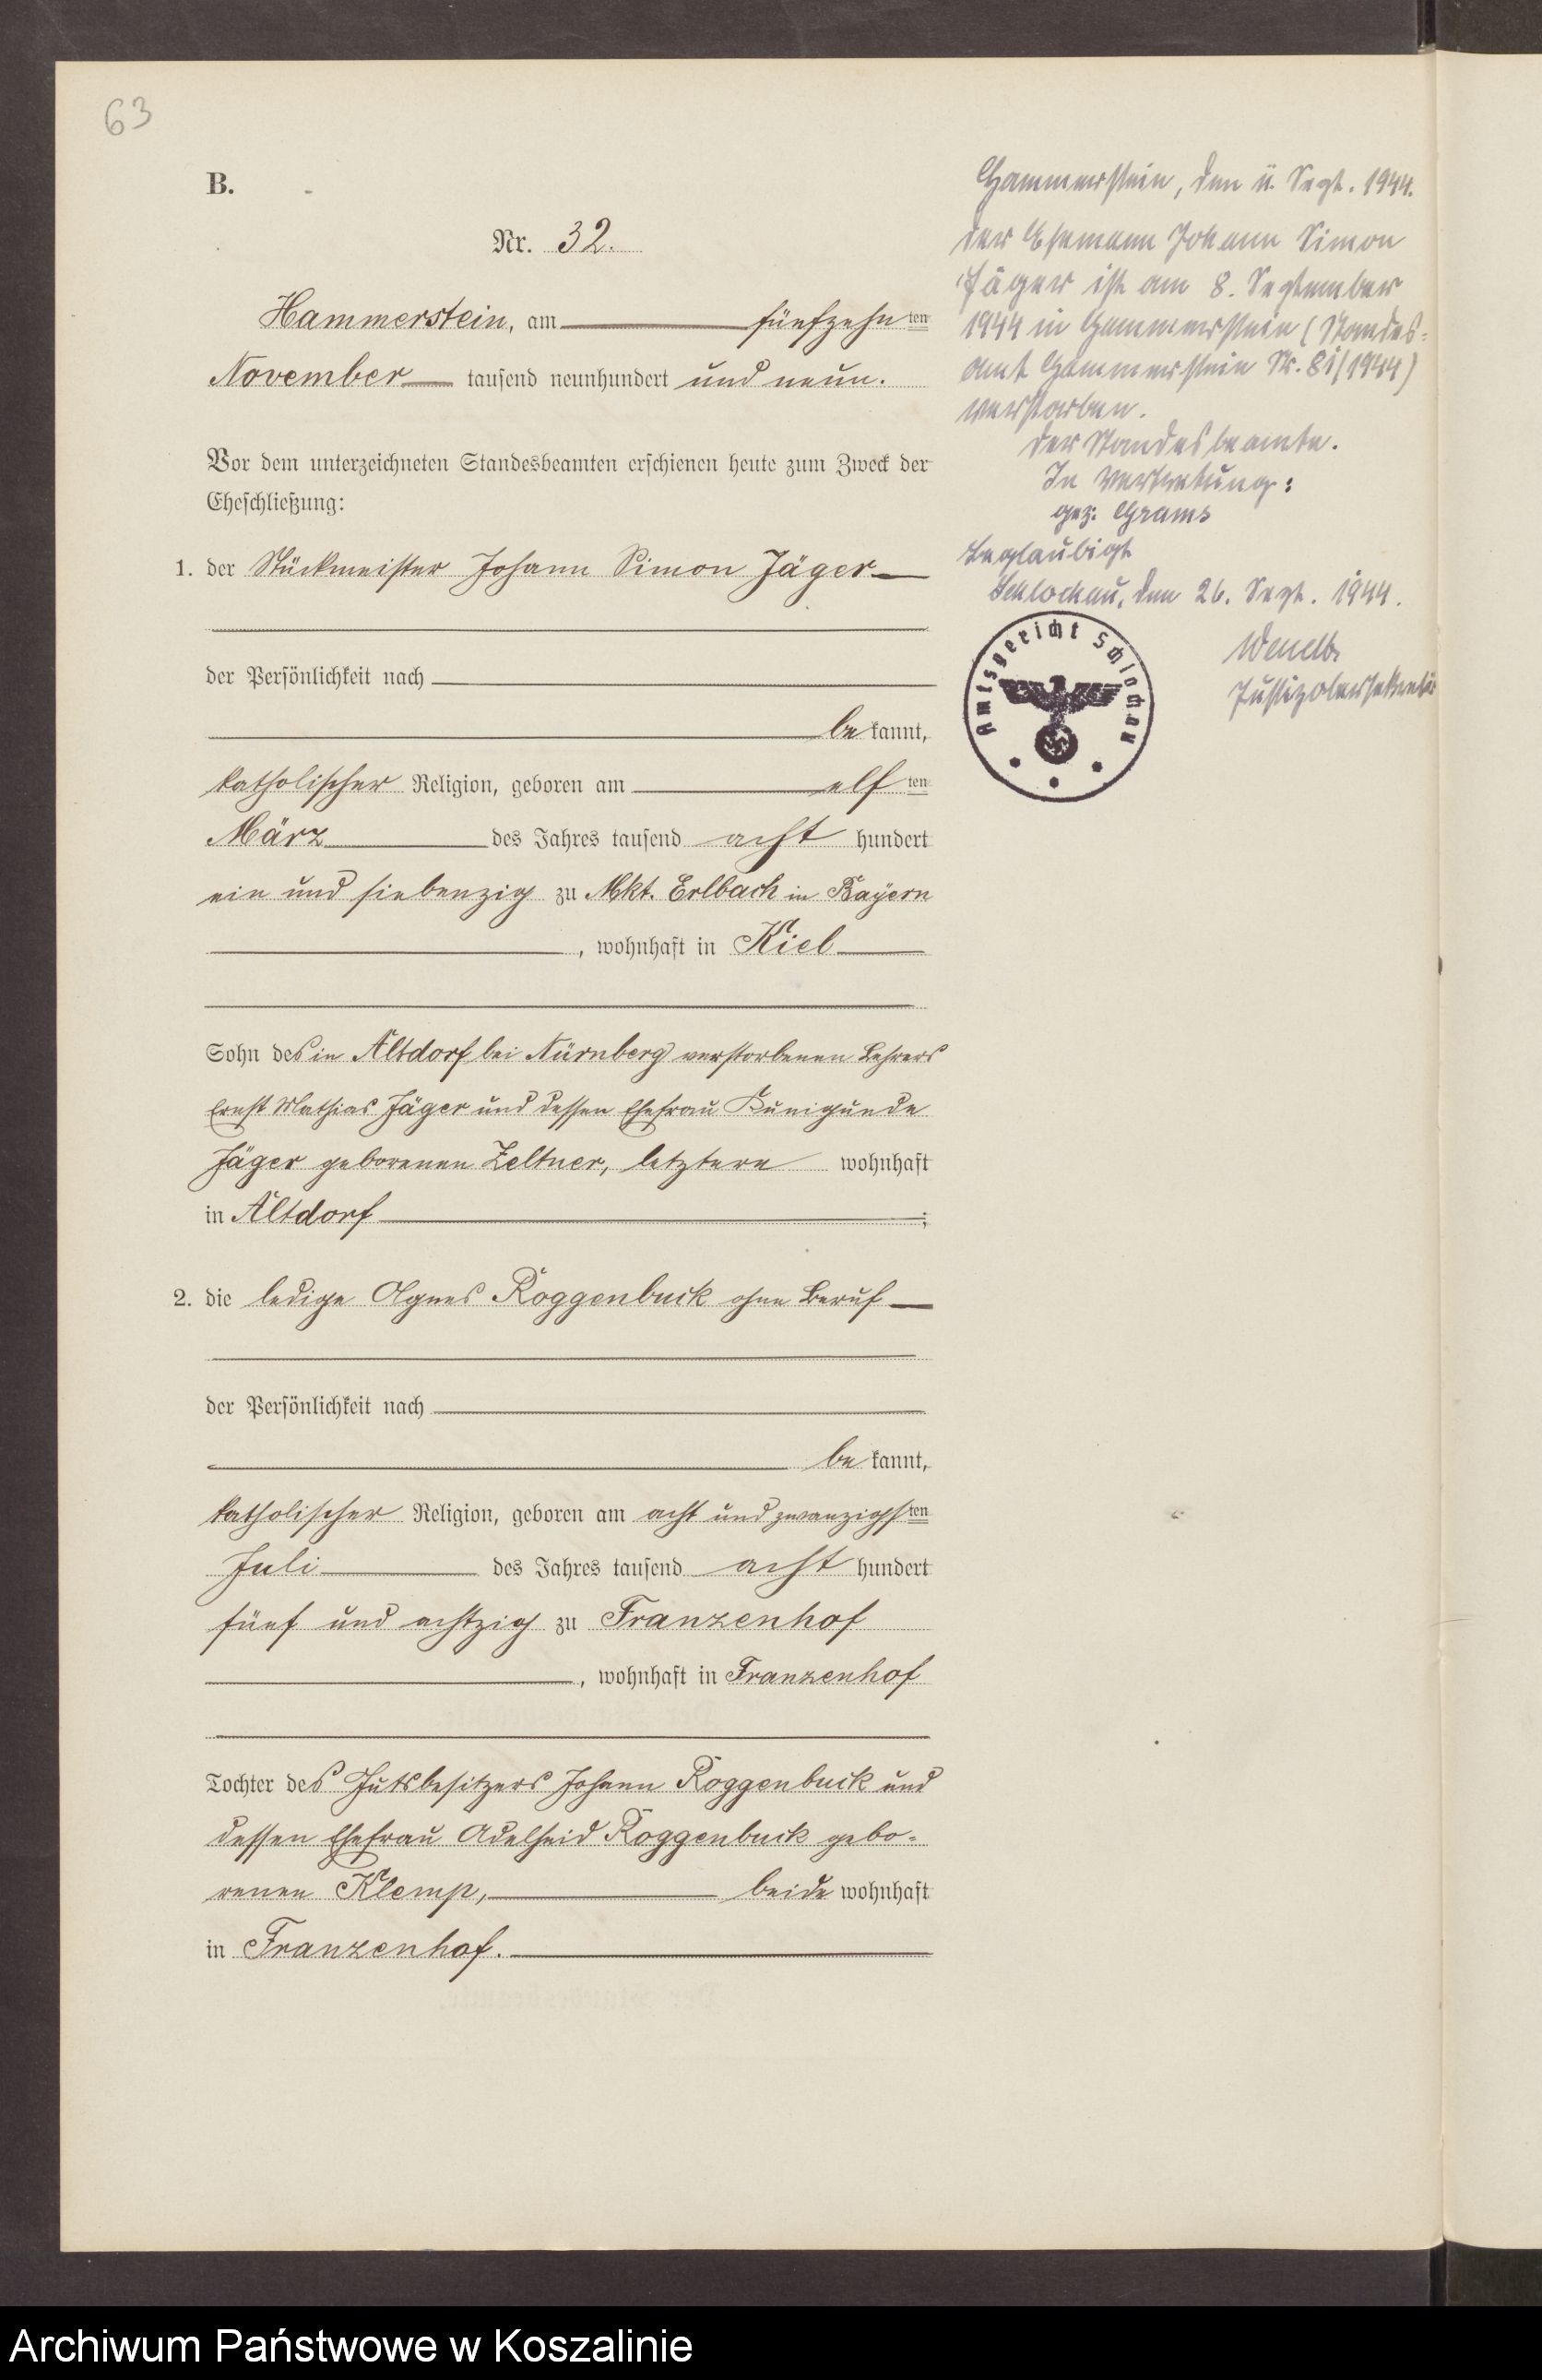 63
B.
Nr. 32.
Hammerstein, am fünfzehn ten
November tausend neunhundert und neun.
Vor dem unterzeichneten Standesbeamten erschienen heute zum Zweck der
Eheschließung:
1. der Stückmeister Johann Simon Jäger
der Persönlichkeit nach
be kannt,
katholischer Religion, geboren am elf ten
März des Jahres tausend acht hundert
ein und siebenzig zu Mkt. Erlbach in Bayern
, wohnhaft in Kiel
Sohn des in Altdorf bei Nürnberg verstorbenen Lehrers
Ernst Mathias Jäger und dessen Ehefrau Kunigunde
Jäger geborenen Zeltner, letztere wohnhaft
in Altdorf ;
2. die ledige Agnes Roggenbuck ohne Beruf
der Persönlichkeit nach
be kannt,
katholischer Religion, geboren am acht und zwanzigsten
Juli des Jahres tausend acht hundert
fünf und achtzig zu Franzenhof
, wohnhaft in Franzenhof
Tochter des Gutsbesitzers Johann Roggenbuck und
dessen Ehefrau Adelheid Roggenbuck gebo-
renen Klemp, beide wohnhaft
in Franzenhof.
Hammerstein, den 11. Sept. 1944.
Der Ehemann Johann Simon
Jäger ist am 8. September
1944 in Hammerstein (Standes-
amt Hammerstein Nr. 81/1944)
verstorben.
Der Standesbeamte.
In Vertretung:
gez. Grams
Beglaubigt
Schlochau, den 26. Sept. 1944.
Justizobersekretär
Amtsgericht Schlochau
Archiwum Państwowe w Koszalinie